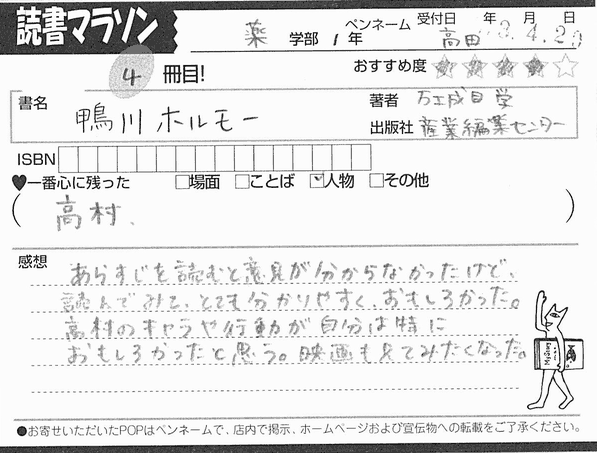 読書マラソン
薬 学部 1年
ペンネーム 高田
受付日 年 月 日
3.4.23
4 冊目!
おすすめ度 ★★★★☆
書名 鴨川ホルモー
著者 万城目学
出版社 産業編集センター
ISBN
♥一番心に残った □場面 □ことば ☑人物 □その他
(高村、)
感想
あらすじを読むと意見が分からなかったけど、
読んでみて、とても分かりやすく、おもしろかった。
高村のキャラや行動が自分は特に
おもしろかったと思う。映画も見てみたくなった。
●お寄せいただいたPOPはペンネームで、店内で掲示、ホームページおよび宣伝物への転載をご了承ください。